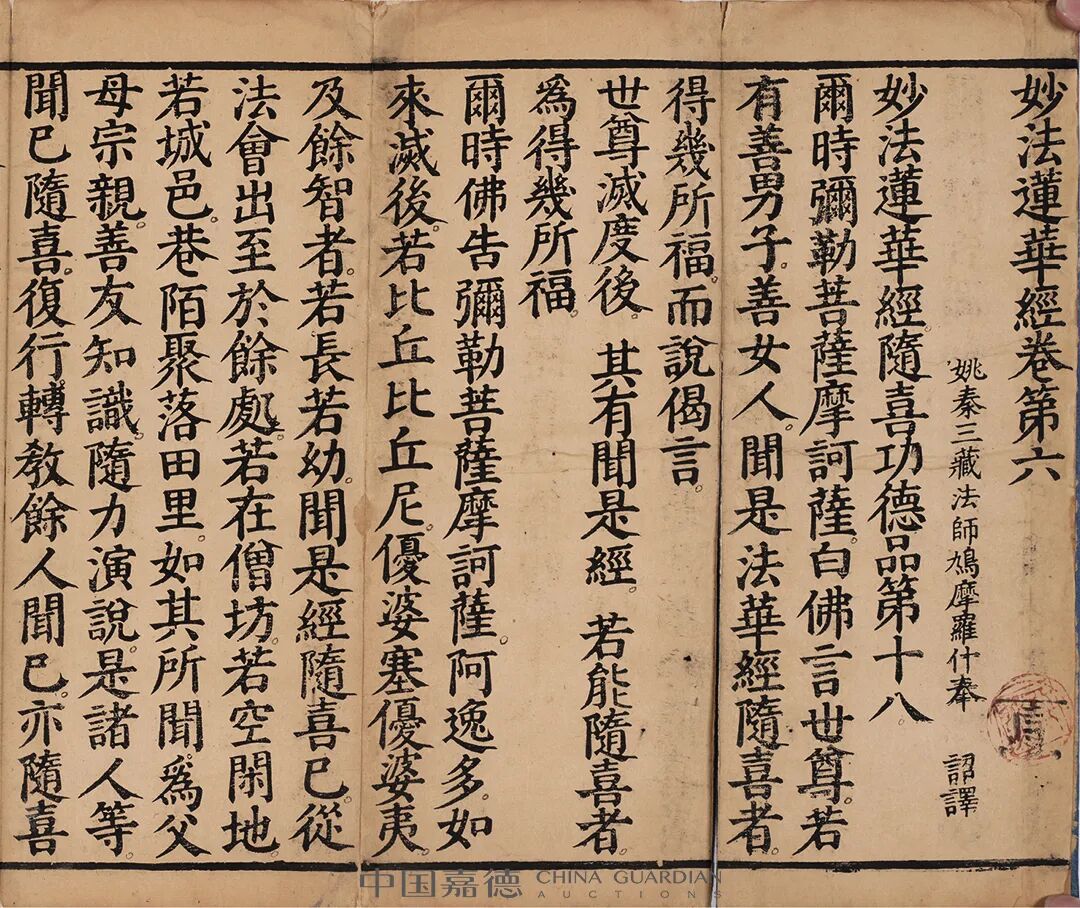 妙法蓮華經卷第六
姚秦三藏法師鳩摩羅什奉 詔譯
妙法蓮華經隨喜功德品第十八
爾時彌勒菩薩摩訶薩白佛言世尊。若
有善男子。善女人。聞是法華經隨喜者。
得幾所福。而說偈言。
世尊滅度後。 其有聞是經 若能隨喜者。
為得幾所福
爾時佛告彌勒菩薩摩訶薩。阿逸多。如
來滅後。若比丘比丘尼。優婆塞優婆夷。
及餘智者。若長若幼。聞是經隨喜已。從
法會出至於餘處。若在僧坊。若空閑地。
若城邑。巷陌聚落田里。如其所聞。為父
母宗親。善友知識。隨力演說。是諸人等。
聞已隨喜。復行轉教。餘人聞已。亦隨喜
中国嘉德 CHINA GUARDIAN AUCTIONS